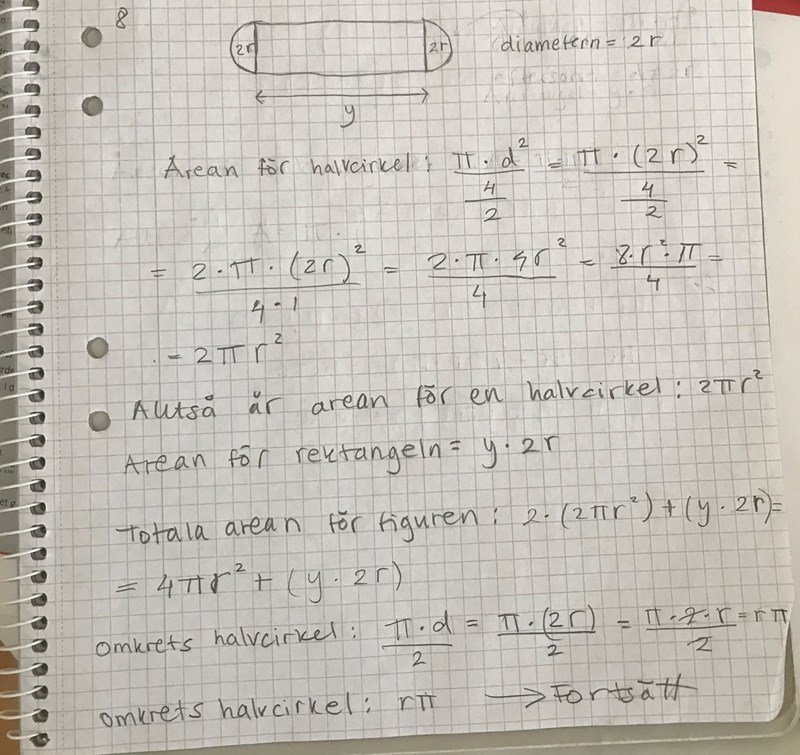 8
2r 2r diametern = 2r
y
Arean för halvcirkel: π·d²/4/2 = π·(2r)²/4/2 =
= 2·π·(2r)²/4·1 = 2·π·4r²/4 = 8·r²·π/4 =
= 2πr²
Alltså är arean för en halvcirkel: 2πr²
Arean för rektangeln = y·2r
Totala arean för figuren: 2·(2πr²)+(y·2r)=
= 4πr²+(y·2r)
omkrets halvcirkel: π·d/2 = π·(2r)/2 = π·2·r/2 = rπ
omkrets halvcirkel: rπ → Fortsätt